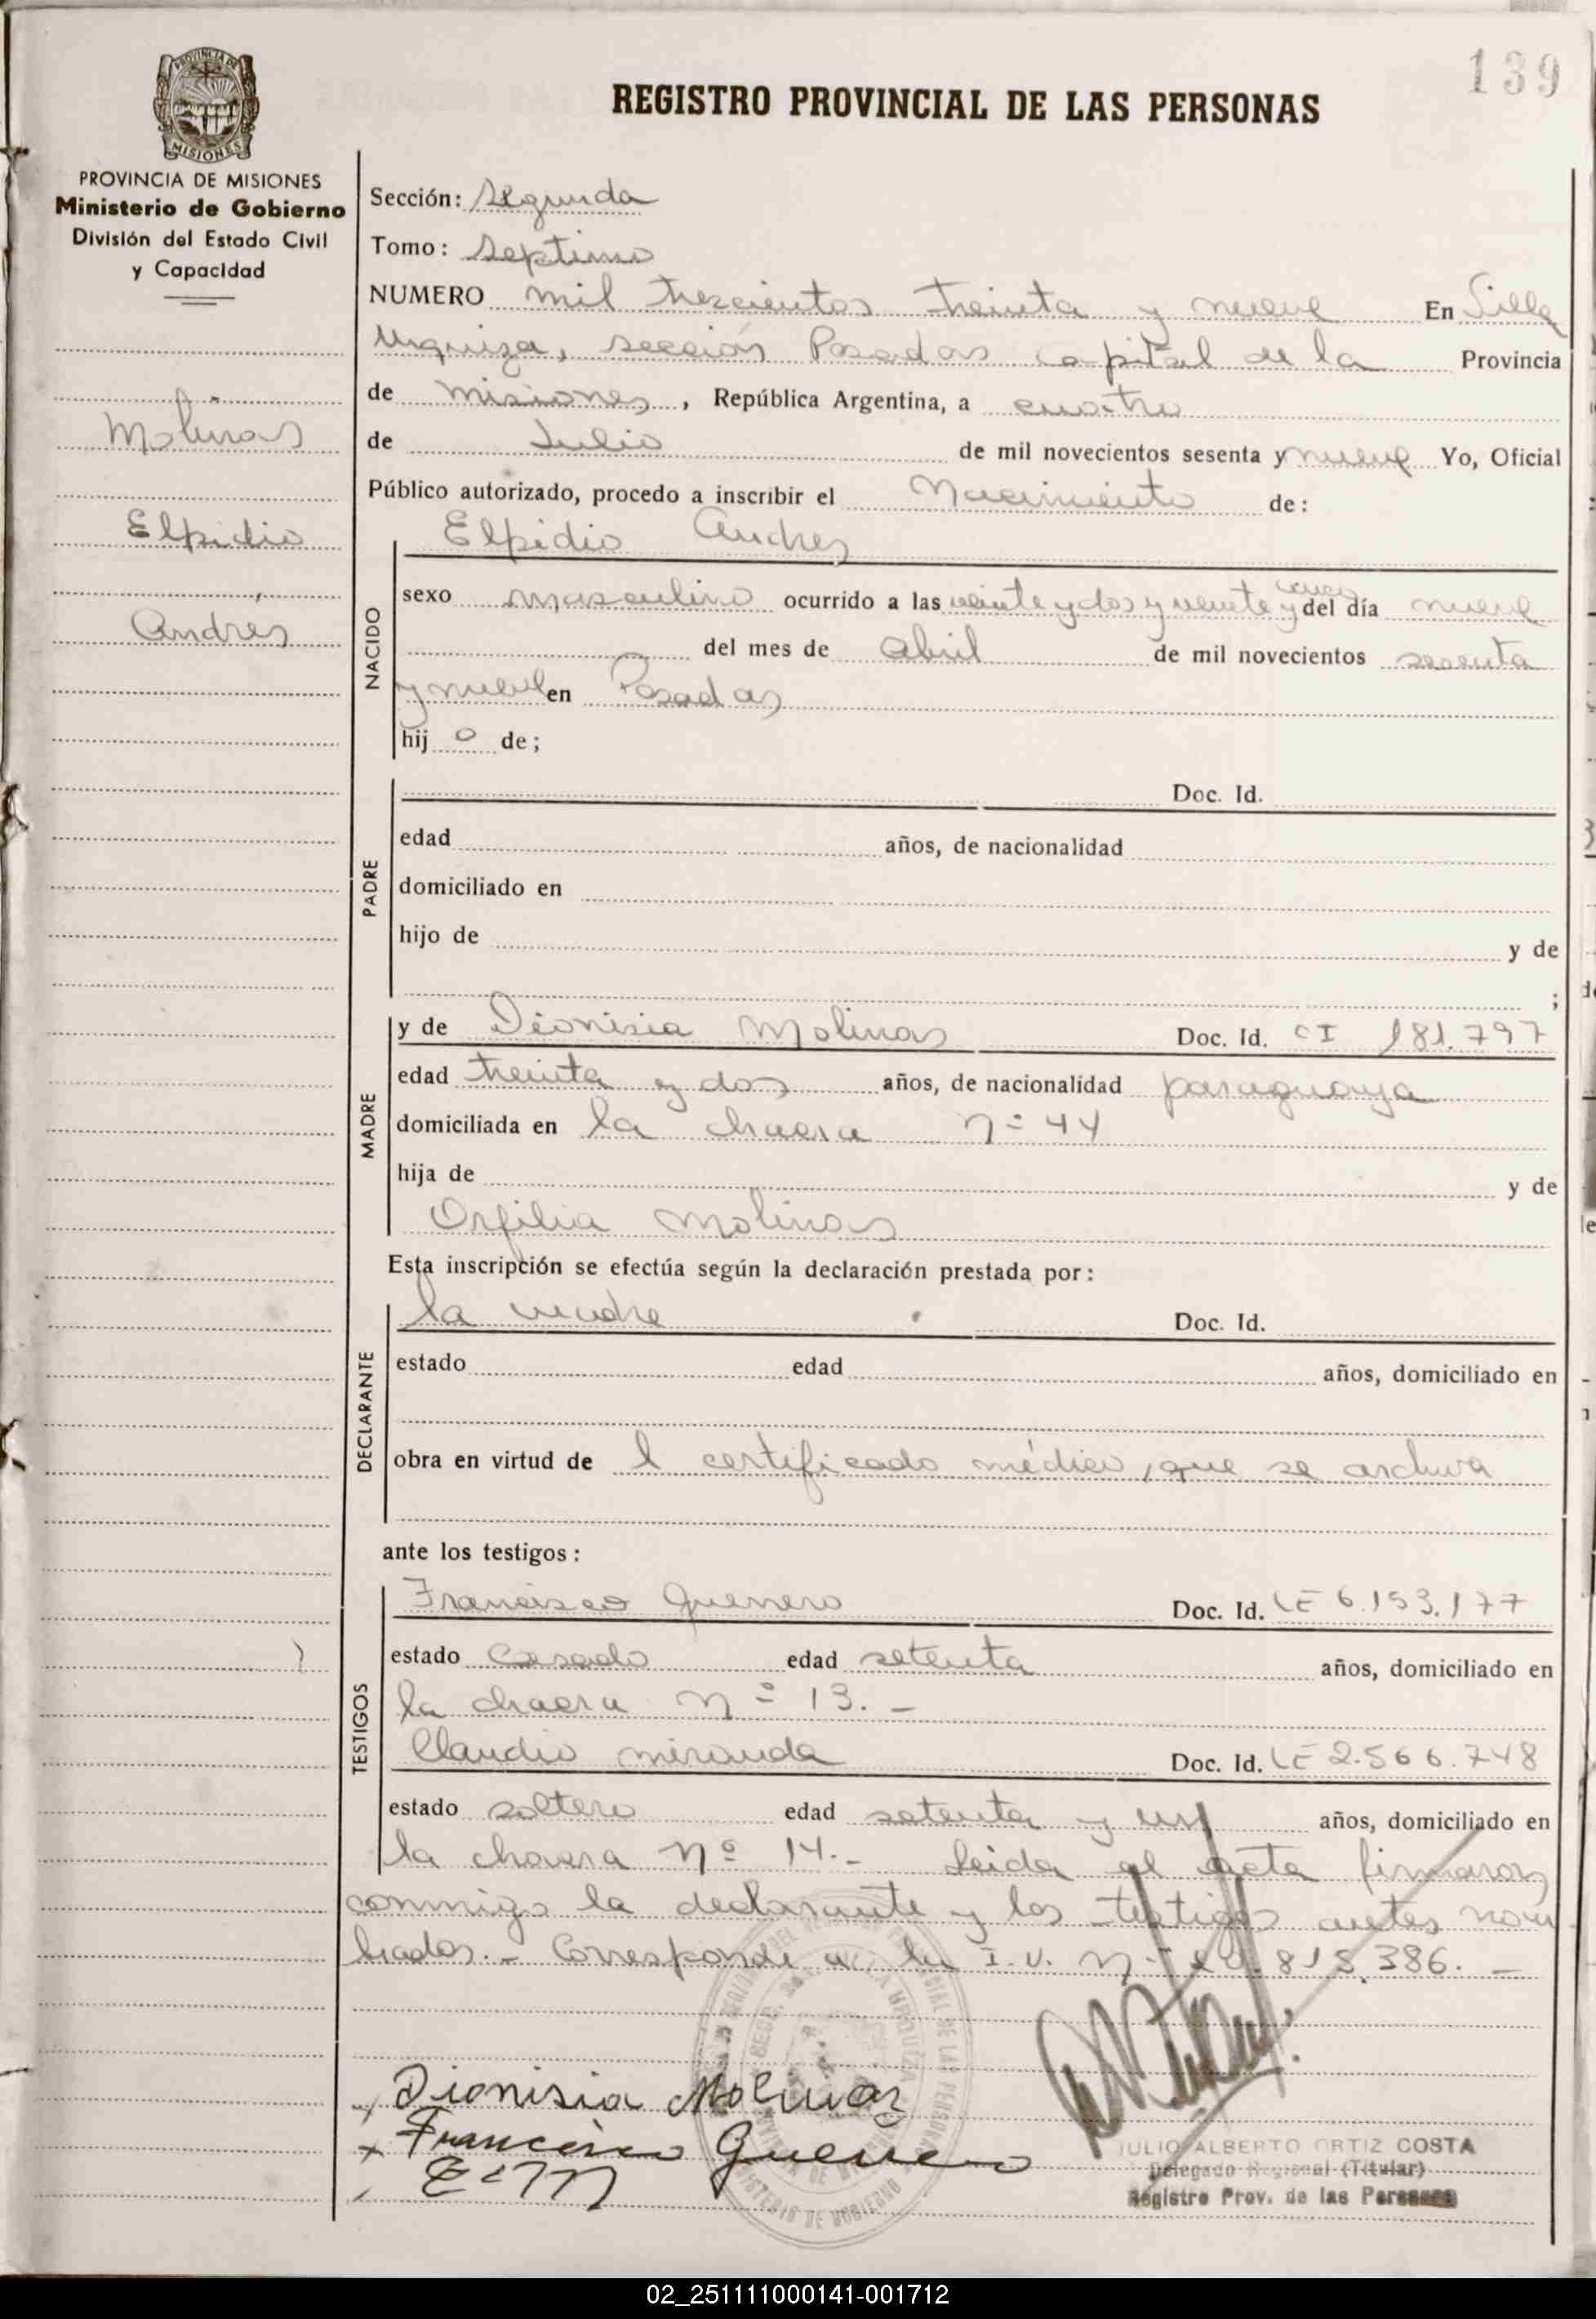 139
REGISTRO PROVINCIAL DE LAS PERSONAS
MISIONES
PROVINCIA DE MISIONES
Ministerio de Gobierno
División del Estado Civil
y Capacidad
Molinas
Elpidio
Andrés
Sección: Segunda
Tomo: Septimo
NUMERO mil trescientos treinta y nueve En Villa
Urquiza, sección Posadas capital de la Provincia
de Misiones, República Argentina, a cuatro
de Julio de mil novecientos sesenta y nueve Yo, Oficial
Público autorizado, procedo a inscribir el Nacimiento de:
Elpidio Andres
NACIDO
sexo masculino ocurrido a las veinte y dos y veinte y cinco del día nueve
del mes de abril de mil novecientos sesenta
y nueve en Posadas
hij o de;
PADRE
Doc. Id.
edad años, de nacionalidad
domiciliado en
hijo de y de
;
MADRE
y de Dionisia Molinas Doc. Id. CI 181.797
edad treinta y dos años, de nacionalidad paraguaya
domiciliada en la chacra nº 44
hija de y de
Orfilia Molinas
Esta inscripción se efectúa según la declaración prestada por:
DECLARANTE
la madre Doc. Id.
estado edad años, domiciliado en
obra en virtud de l certificado médico, que se archiva
ante los testigos:
TESTIGOS
Francisco Guerrero Doc. Id. LE 6.153.177
estado Casado edad setenta años, domiciliado en
la chacra nº 13. -
Claudio miranda Doc. Id. LE 2.566.748
estado soltero edad setenta y un años, domiciliado en
la chacra nº 14. - leida el acta firmaron
conmigo la declarante y los testigos antes nom
brados. - Corresponde a la I.V. nº 20.813.386. -
Dionisia Molinas
Francisco Guerrero
JULIO ALBERTO ORTIZ COSTA
Delegado Regional (Titular)
Registro Prov. de las Personas
02_251111000141-001712